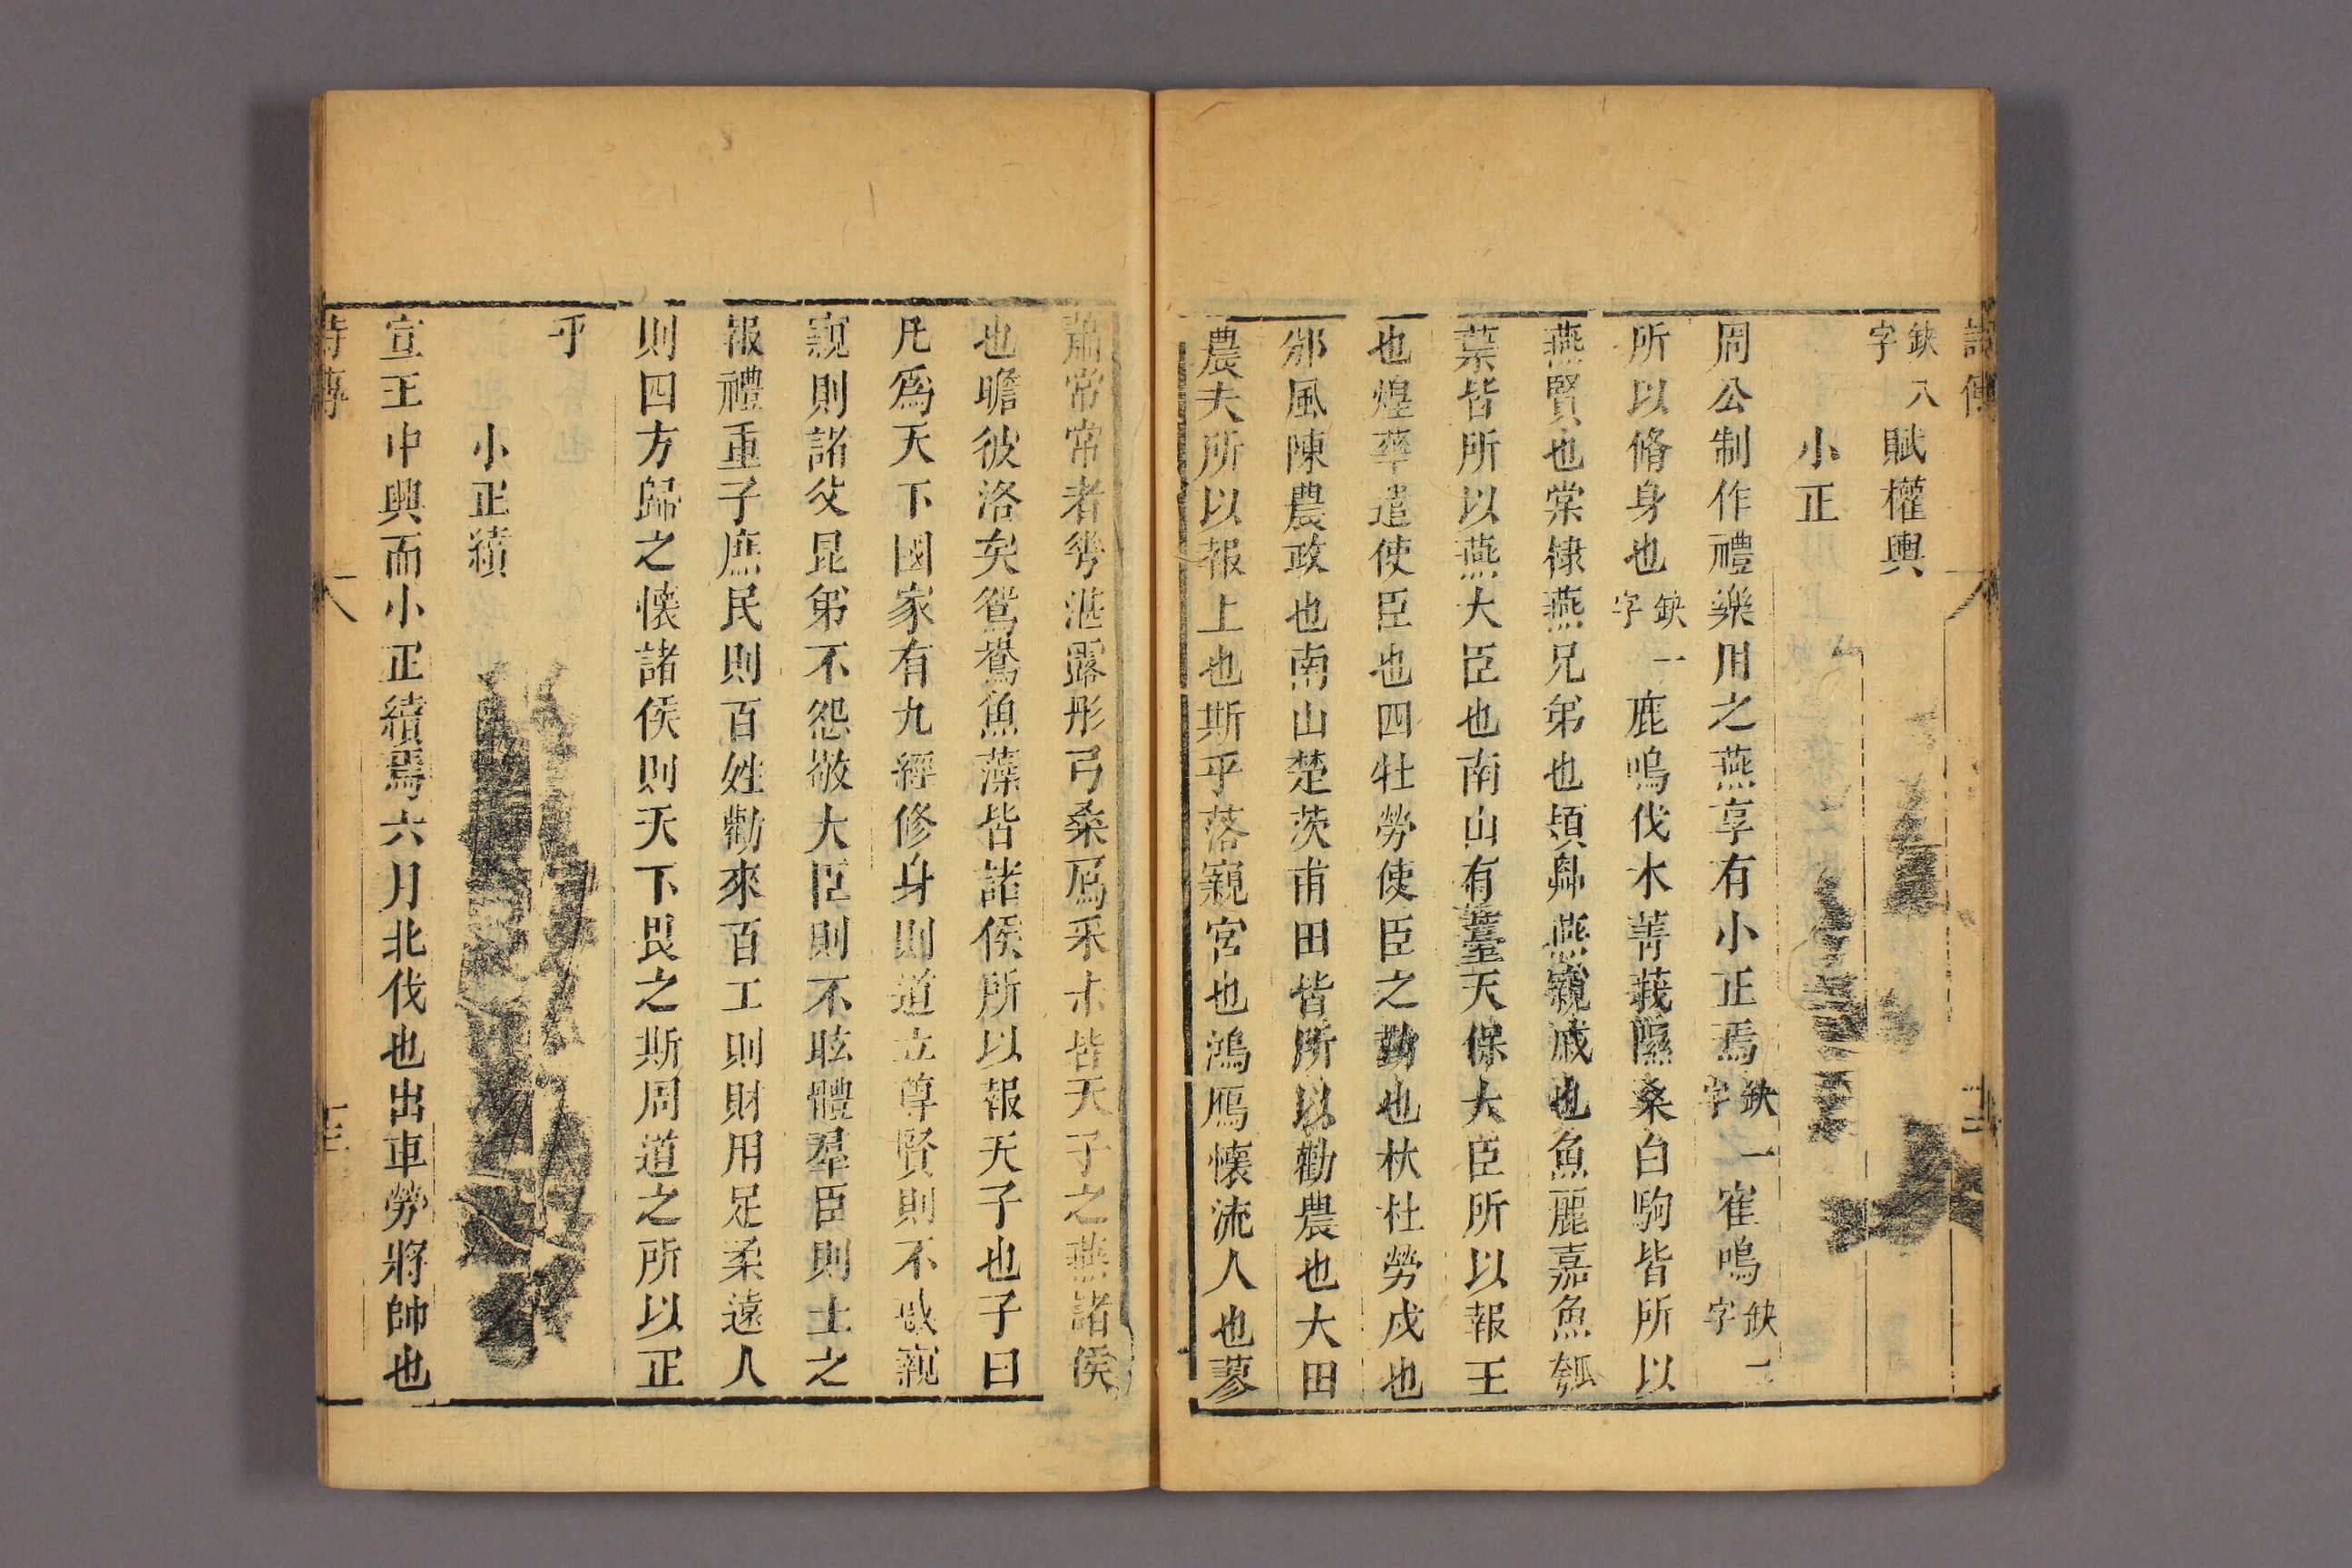 詩傳
缺八字賦權輿
小正
周公制作禮樂用之燕享有小正焉缺一字寉鳴缺二字
所以脩身也缺一字鹿鳴伐木菁莪隰桑白駒皆所以
燕賢也棠棣燕兄弟也頍弁燕親戚也魚麗嘉魚瓠
葉皆所以燕大臣也南山有薹天保大臣所以報王
也煌華遣使臣也四牡勞使臣之勤也杕杜勞戍也
邠風陳農政也南山楚茨甫田皆所以勸農也大田
農夫所以報上也斯乎落寴宮也鴻鴈懷流人也蓼
蕭常常者華湛露彤弓桑扈采尗皆天子之燕諸侯
也瞻彼洛矣鴛鴦魚藻皆諸侯所以報天子也子曰
凡為天下國家有九經修身則道立尊賢則不惑親
親則諸父昆弟不怨敬大臣則不眩體羣臣則士之
報禮重子庶民則百姓勸來百工則財用足柔遠人
則四方歸之懷諸侯則天下畏之斯周道之所以正
乎
小正續
宣王中興而小正續焉六月北伐也出車勞將帥也
詩傳